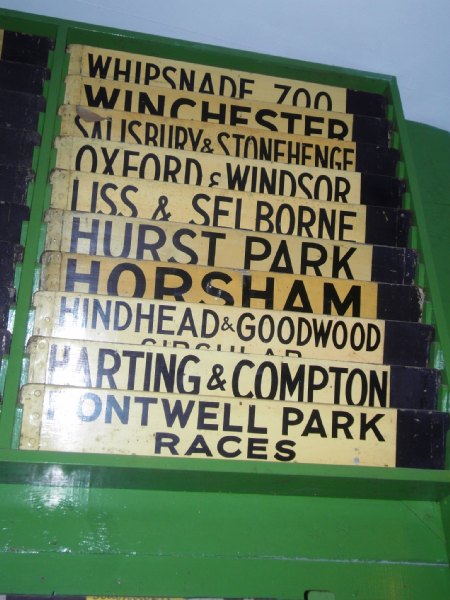 WHIPSNADE ZOO
WINCHESTER
SALISBURY & STONEHENGE
OXFORD & WINDSOR
LISS & SELBORNE
HURST PARK
HORSHAM
HINDHEAD & GOODWOOD
CIRCULAR
HARTING & COMPTON
FONTWELL PARK
RACES